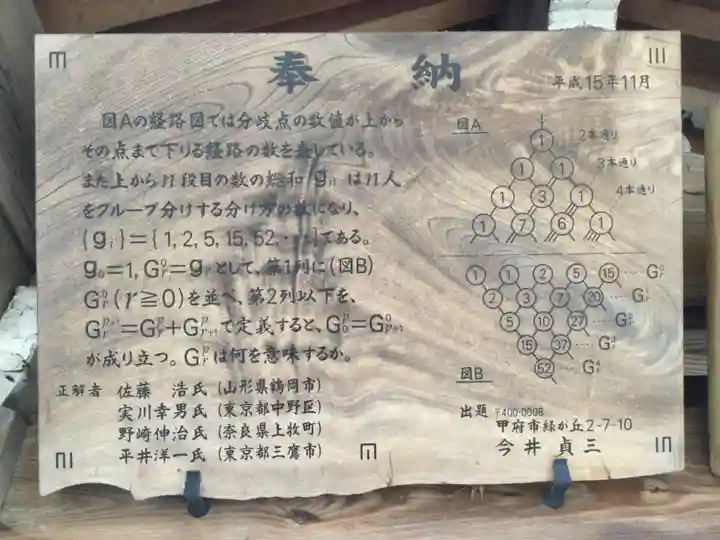 奉 納
平成15年11月
図Aの経路図では分岐点の数値が上から
その点まで下りる経路の数を表している。
また上からn段目の数の総和 gₙ はn人
をグループ分けする分け方の数になり、
{gᵢ}={1, 2, 5, 15, 52, …}である。
g₀=1, G⁰ᵣ=gᵣとして、第1列に(図B)
G⁰ᵣ(r≧0)を並べ、第2列以下を、
Gᵖ⁺¹ᵣ=Gᵖᵣ+Gᵖᵣ₊₁で定義すると、Gᵖ₀=G⁰ₚ₊₁
が成り立つ。Gᵖᵣは何を意味するか。
図A
1
2本通り
1 1
3本通り
1 3 1
4本通り
1 7 6 1
1 1 2 5 15 … G⁰ᵣ
2 3 7 20 … G¹ᵣ
5 10 27 … G²ᵣ
15 37 … G³ᵣ
52 … G⁴ᵣ
図B
正解者 佐藤 浩氏(山形県鶴岡市)
実川幸男氏(東京都中野区)
野崎伸治氏(奈良県上牧町)
平井洋一氏(東京都三鷹市)
出題 〒400-0008
甲府市緑が丘2-7-10
今井 貞三